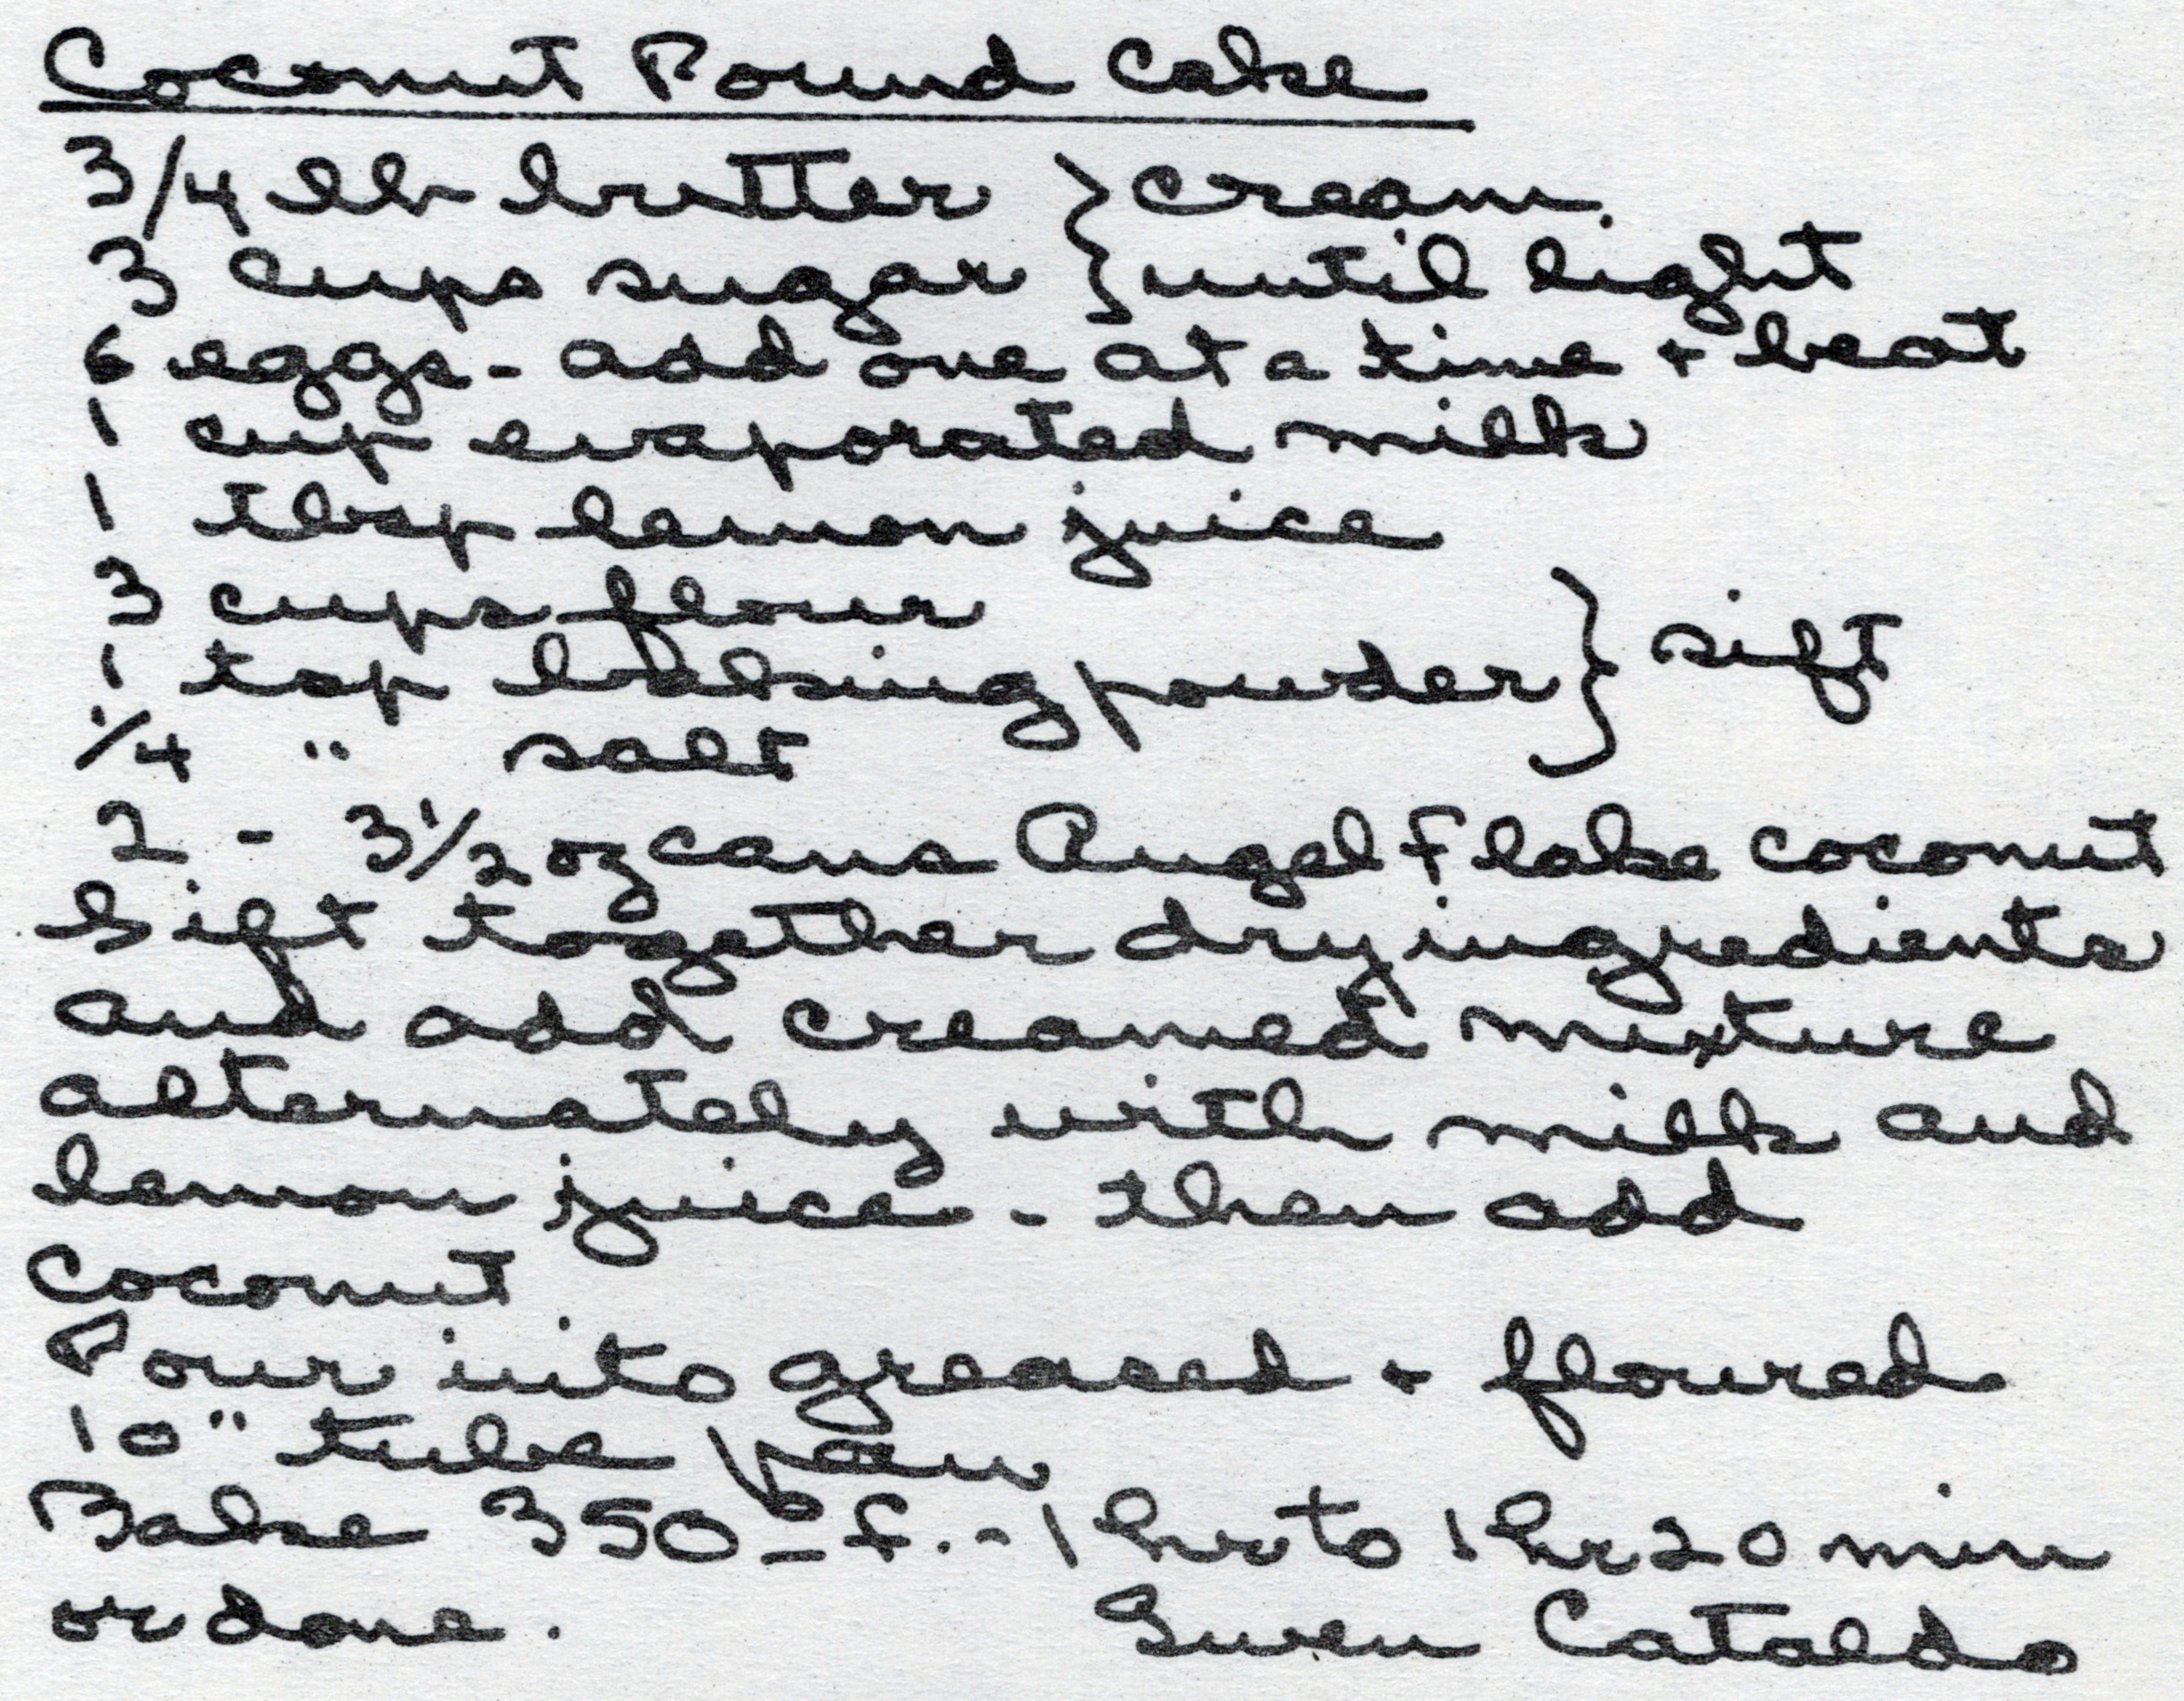 Coconut Pound Cake
3/4 lb butter } cream
3 cups sugar } until light
6 eggs - add one at a time + beat
1 cup evaporated milk
1 tbsp lemon juice
3 cups flour
1 tsp baking powder } sift
1/4 " salt
2 - 3 1/2 oz cans Angel Flake coconut
Sift together dry ingredients
and add creamed mixture
alternately with milk and
lemon juice - then add
coconut
Pour into greased + floured
10" tube pan
Bake 350° f. - 1 hr to 1 hr 20 min
or done.
Gwen Cataldo